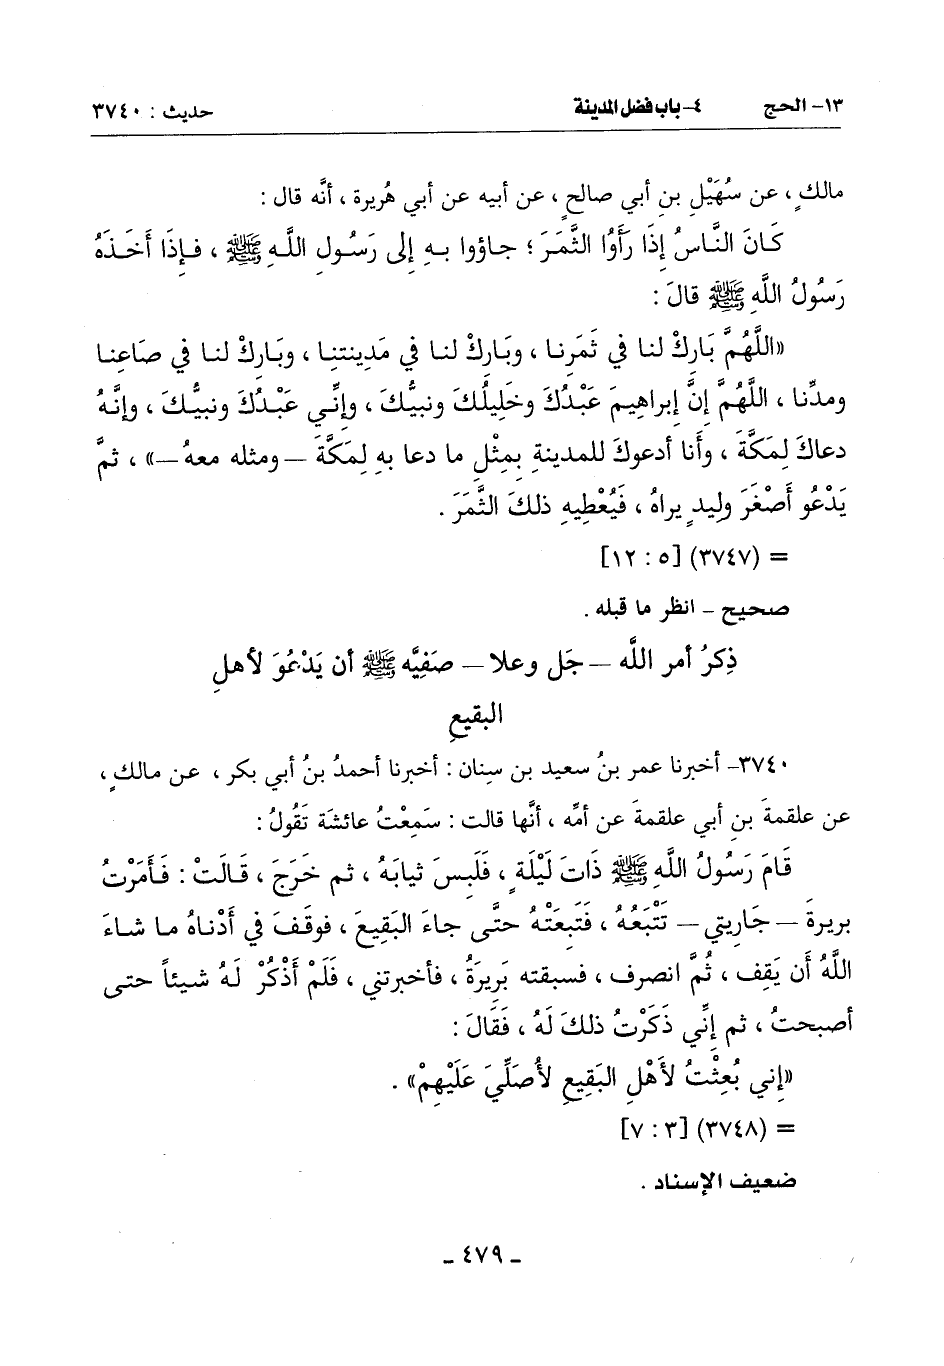 ١٣- الحج ٤- باب فضل المدينة حديث : ٣٧٤٠
مالكٍ ، عن سُهَيْلِ بنِ أبي صالحٍ ، عن أبيه عن أبي هُريرة ، أنَّه قال :
كَانَ النَّاسُ إِذَا رَأَوُا الثَّمَرَ ؛ جاؤوا بِهِ إلى رَسُولِ اللَّهِ ﷺ ، فإِذَا أَخَذَهُ
رَسُولُ اللَّهِ ﷺ قالَ :
«اللَّهُمَّ بَارِكْ لنا في ثَمَرِنا ، وبَارِكْ لنا في مَدِينتِنا ، وبَارِكْ لنا في صاعِنا
ومدِّنا ، اللَّهُمَّ إنَّ إبراهِيمَ عَبْدُكَ وخَلِيلُكَ ونبيُّكَ ، وإنِّي عَبْدُكَ ونبيُّكَ ، وإنَّهُ
دعاكَ لِمَكَّةَ ، وأَنا أدعوكَ للمدينةِ بِمثْلِ ما دعا بهِ لِمَكَّةَ —ومثله معهُ—» ، ثمَّ
يَدْعُو أَصْغَرَ وليدٍ يراهُ ، فَيُعْطِيهِ ذلكَ الثَّمَرَ .
= (٣٧٤٧) [٥ : ١٢]
صحيح - انظر ما قبله .
ذِكرُ أمر اللَّه —جَل وعلا— صَفِيَّه ﷺ أن يَدْعُوَ لأهلِ
البقيعِ
٣٧٤٠- أخبرنا عمر بنُ سعيد بن سِنان : أخبرنا أحمدُ بنُ أبي بكر ، عن مالكٍ ،
عن علقمةَ بنِ أبي علقمةَ عن أمِّه ، أنَّها قالت : سَمِعْتُ عائشَة تَقُولُ :
قَامَ رَسُولُ اللَّهِ ﷺ ذَاتَ لَيْلَةٍ ، فَلَبِسَ ثيابَهُ ، ثم خَرَجَ ، قَالَتْ : فَأَمَرْتُ
بريرةَ —جَاريتي— تَتْبَعُهُ ، فَتَبِعَتْهُ حتَّى جاءَ البَقِيعَ ، فوقَفَ في أَدْناهُ ما شاءَ
اللَّهُ أَن يَقِف ، ثُمَّ انصرف ، فسبقته بَرِيرَةُ ، فأخبرتني ، فَلَمْ أَذْكُرْ لَهُ شيئاً حتى
أصبحتُ ، ثم إنِّي ذَكَرْتُ ذلكَ لَهُ ، فَقَالَ :
«إني بُعِثْتُ لأهْلِ البَقِيعِ لأُصَلِّيَ عَلَيْهِمْ» .
= (٣٧٤٨) [٣ : ٧]
ضعيف الإسناد .
ـ ٤٧٩ ـ